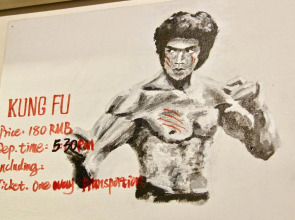 KUNG FU
Price. 180 RMB
Dep. time: 5:30PM
Including.
Ticket. One way transportion